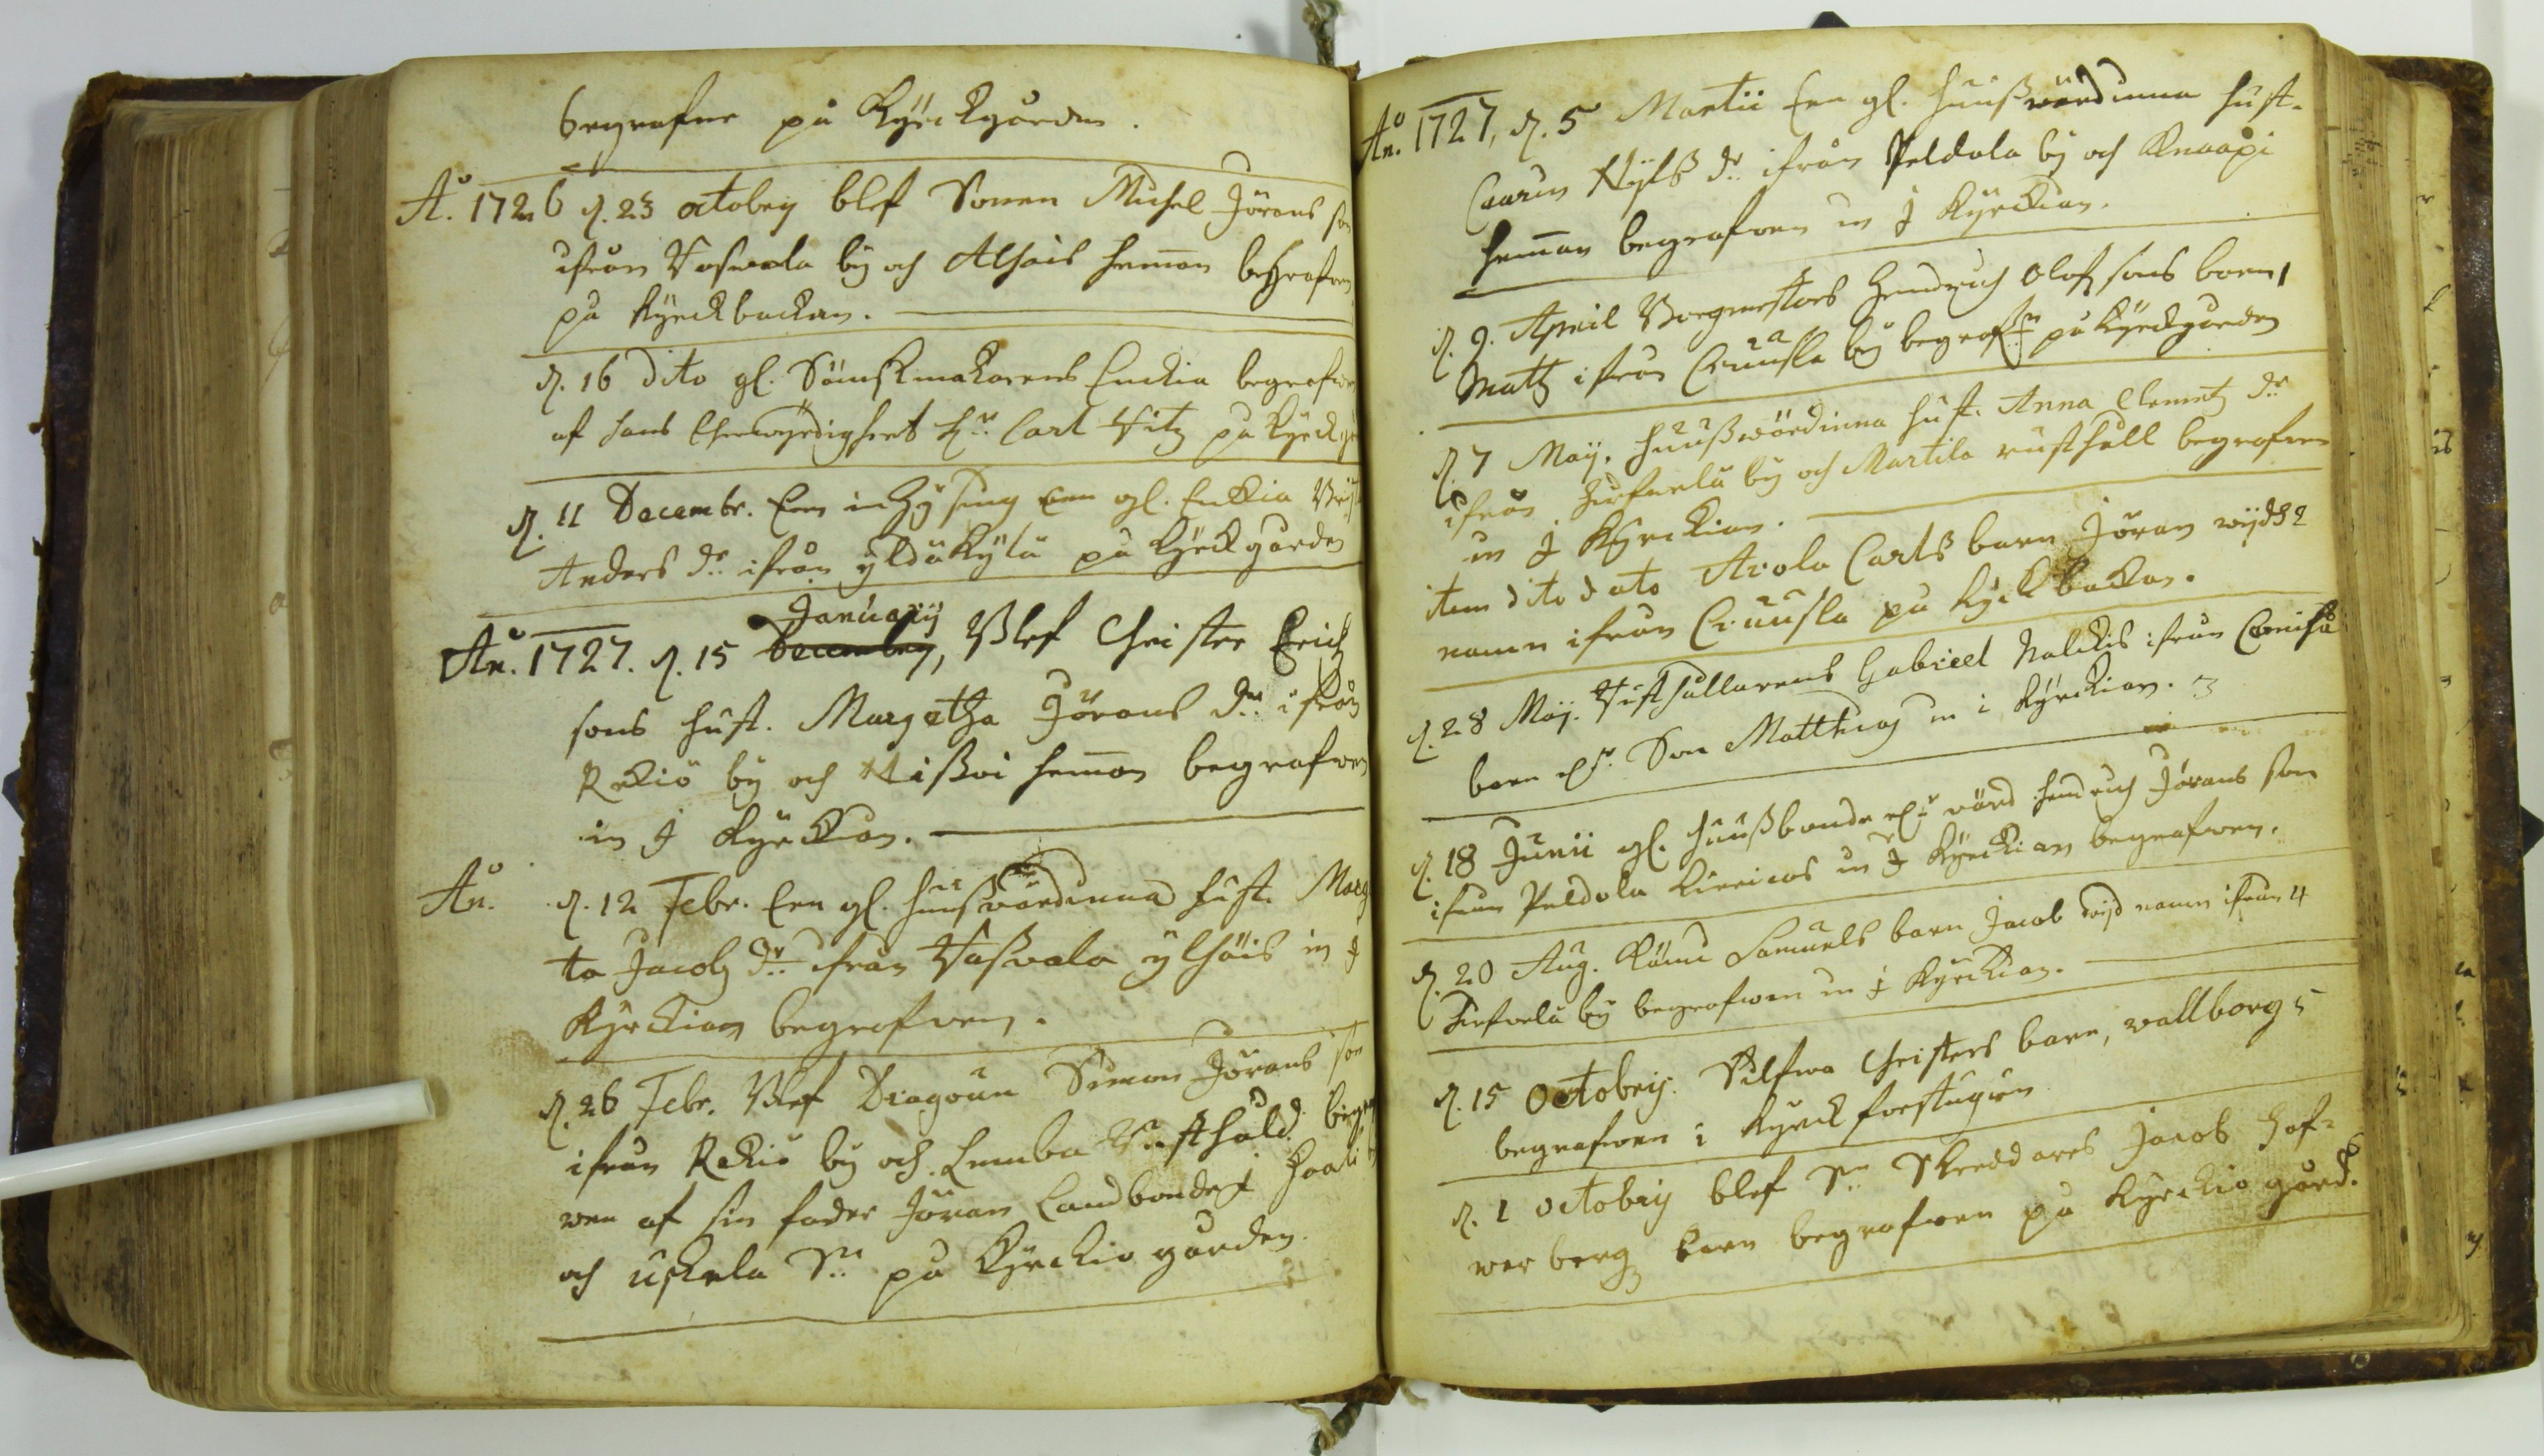 begrafne på Kyrckgården.
A:o 1726 d. 23 octobris blef Sonen Michel Jörans son
ifrån Vaswala by och Alhais hemman begrafwen
på Kyrckbackan.
d. 16 dito gl. Sämskmakarens Enckia begrafwen
af hans Ehrewyrdighet H:r Carl Vitz på Kyrckg
d. 11 Decembr. Een inhysing een gl. Enckia
Anders d:r ifrån yldäkylä på Kyrckgården
Januarij
An:o 1727. d. 15 Decembris, Blef Christer Erichz
sons hust. Margetha Jörans d:r ifrån
Rekiö by och Nissoi hemman begrafwen
in J Kyrckian.
An:o d. 12 Febr. Een gl. huusswärdinna hust. Marg
ta Jacobz d:r ifrån Vasswala ylhäis in J
Kyrckian begrafwen.
d. 26 Febr. Blef Dragoun Simon Jörans son
ifrån Rekiö by och Lemba Rusthåld begraf
wen af sin fader Jöran Landbonde J Haali
och Uskela S:n på Kyrckio gården.
An:o 1727, d. 5 Martii Een gl. huusswärdinna hust.
Caarin Nyls d:r ifrån Peldola by och Knaapi
hemman begrafwen in J Kyrckian.
d. 9. April Borgmestars Hendrich Olofz sons barn 1
Matz ifrån Ciuusla by begrafn på Kyrckgården
d. 7 Maij. huusswärdinna hust. Anna Clemetz d:r
ifrån Hirfvelä by och Martila rusthåll begrafwen
in J Kyrckian.
item dito dato Arola Carls barn Jöran wijdh 2
namn ifrån Ciuusla på Kyrckbackan.
d. 28 Maij. Rusthållarens Gabriel Nalckis ifrån
barn Son Matthias in i Kyrckian. 3
d. 18 Junii gl. huussbonde wärd Hendrich Jörans son
ifrån Peldola Kirricas in J Kyrckian begrafwen.
d. 20 Aug. Samuels barn Jacob wijd namn ifrån 4
Hirfvelä by begrafwen in J Kyrckian.
d. 15 Octobris. Silfwa Christers barn, wallborg 5
begrafwen i Kyrck förstugun
d. 1 octobris blef S:n Skreddares Jacob Haf-
werbergz barn begrafwen på Kyrckio gård.